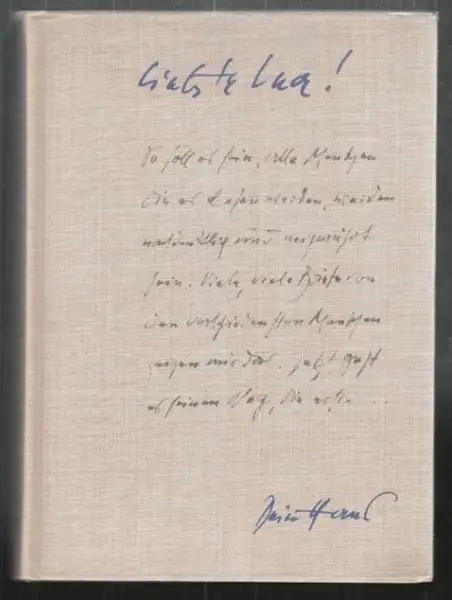 Liebste
So soll es sein, alle Menschen
die es lesen werden, werden
und
sein. Viele, viele Briefe von
den verschiedensten Menschen
zeigen mir das. Jetzt geht
es seinen Weg, die erste ...
Dein